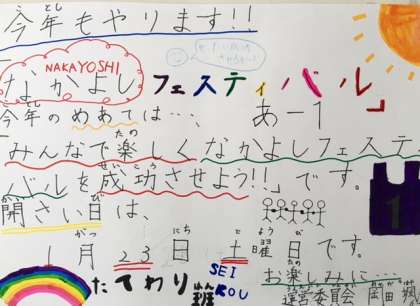 今年もやります!!
とし
NAKAYOSHI
なかよし フェスティバル」
今年の めあては…、 あ－1
みんなで楽しくなかよしフェステ
たの
ィバルを成功させよう!!」です。
せいこう
1
開さい日は、
かい び
1月23日 土曜日です。
がつ にち ど よう び
たてわり
SEI
KOU
お楽しみに…
たの
運営委員会